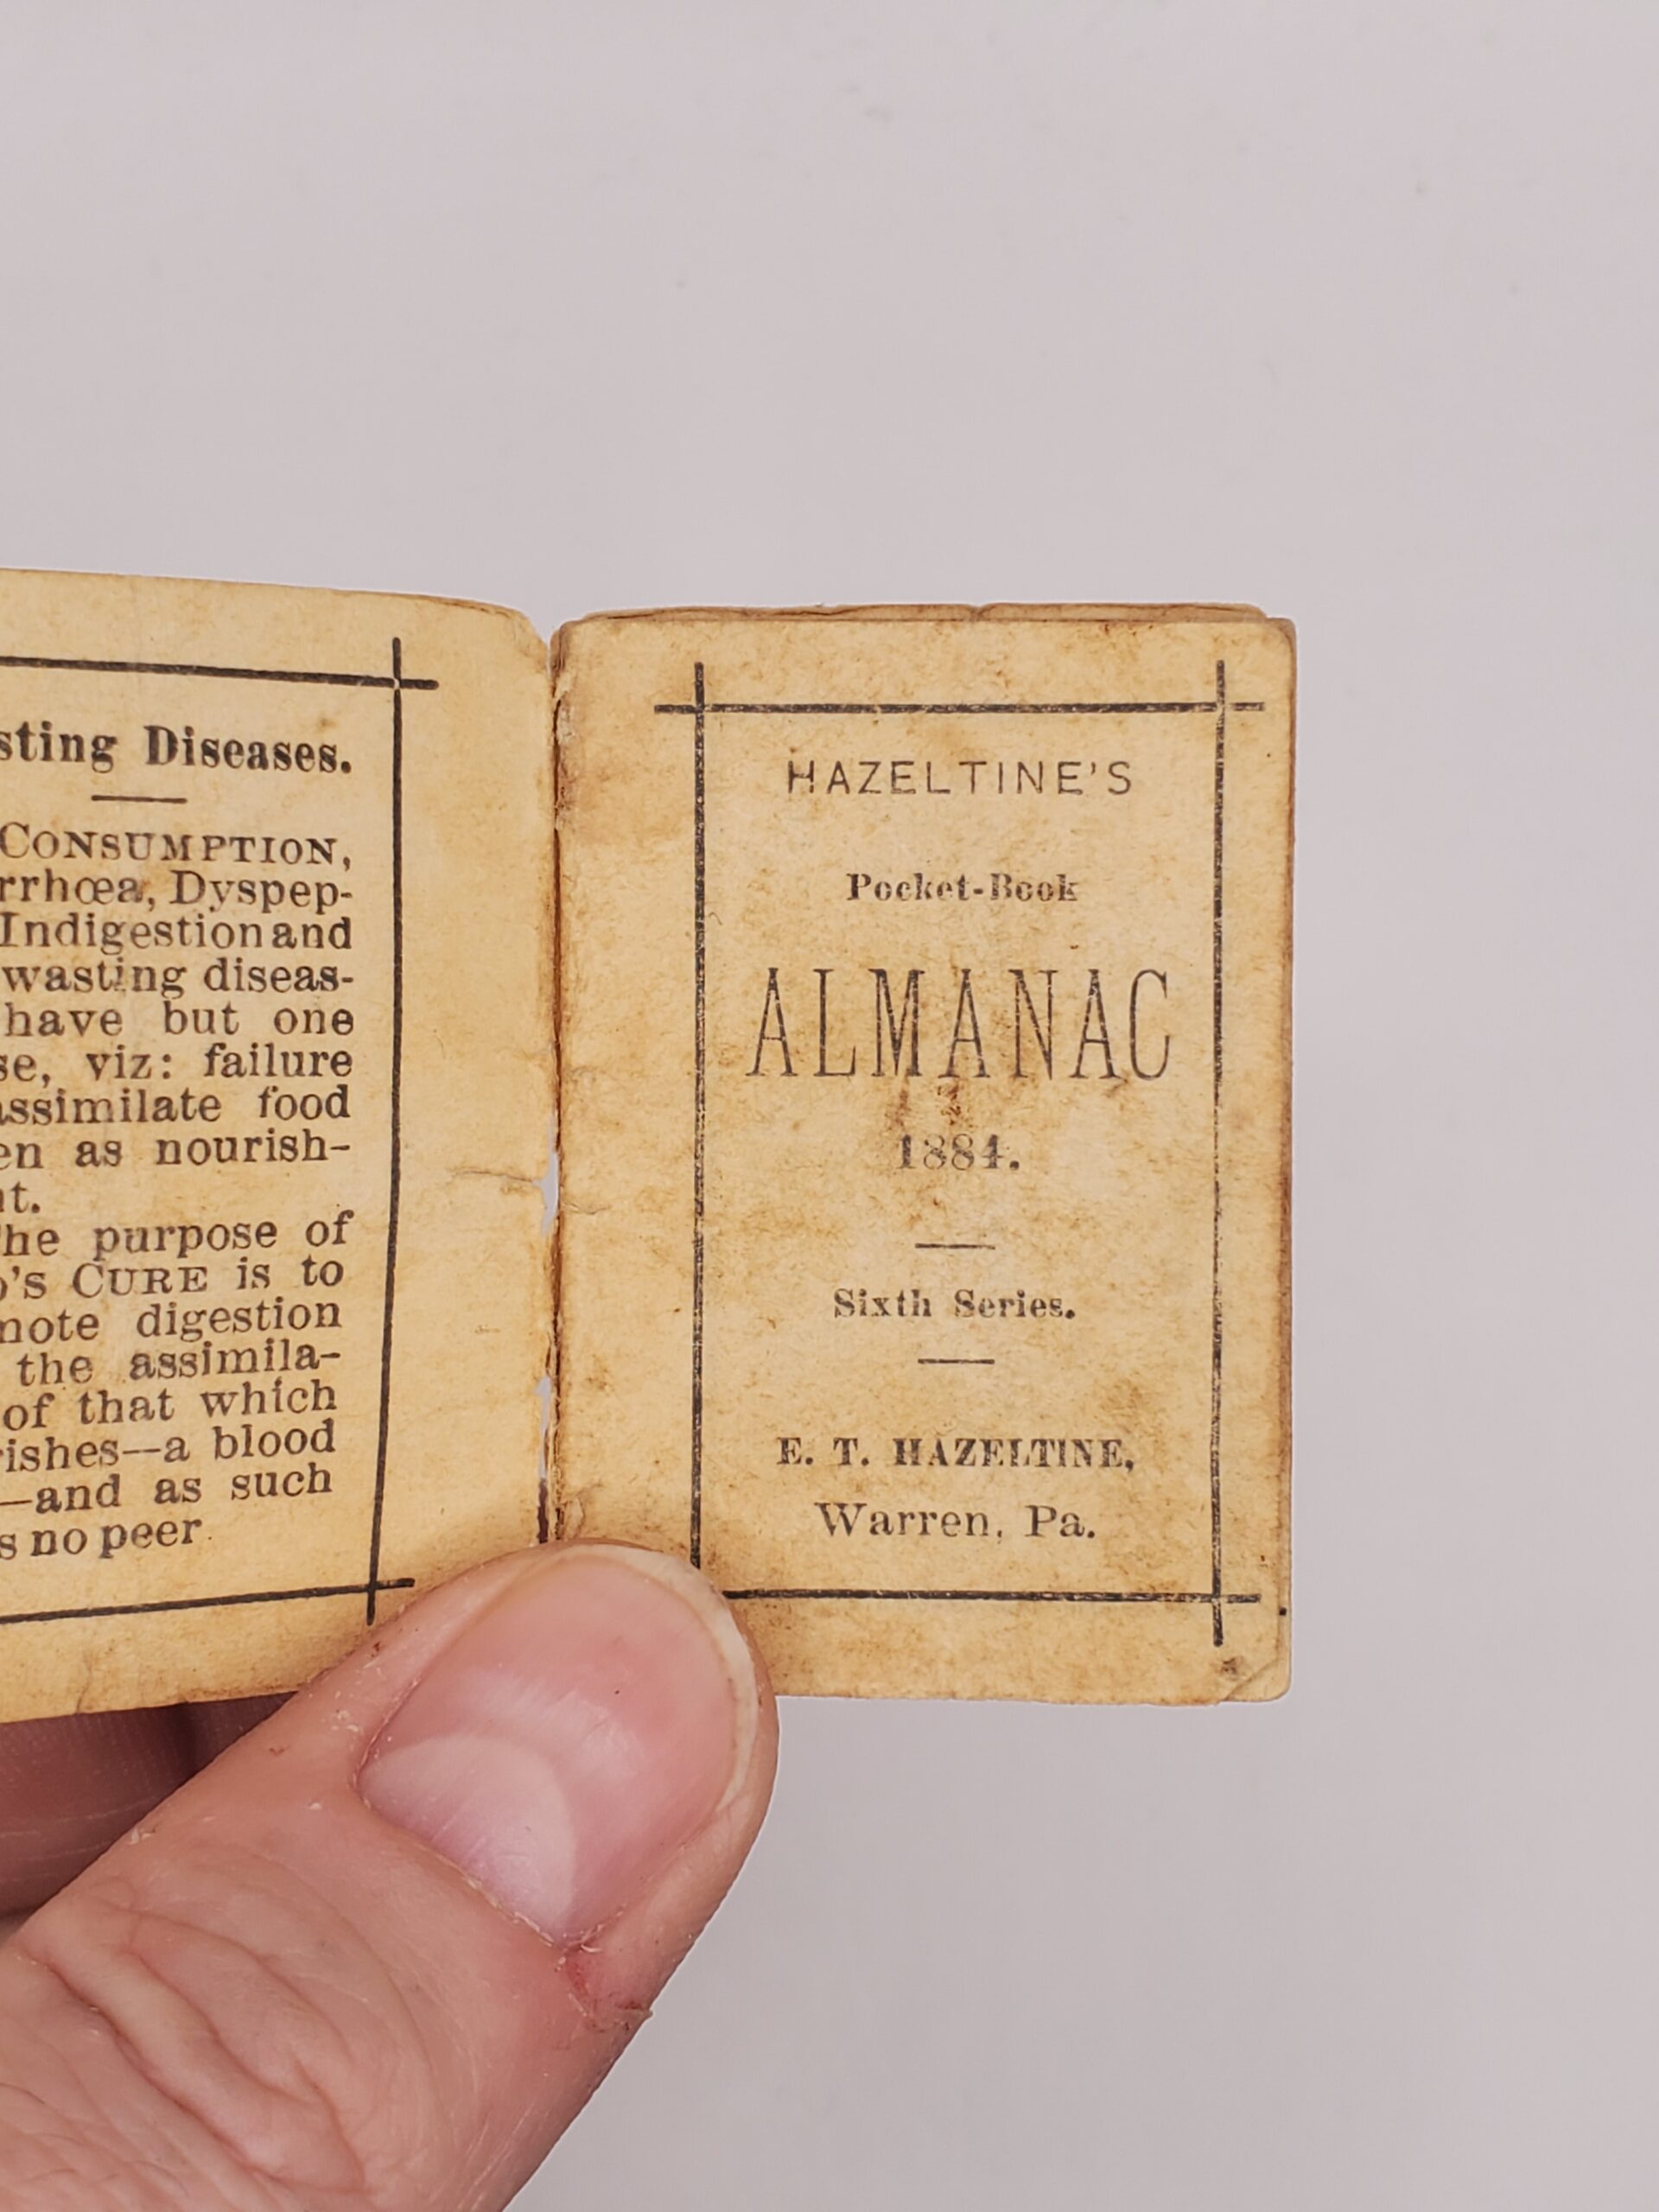 sting Diseases.
CONSUMPTION,
rrhœa, Dyspep-
Indigestion and
wasting diseas-
have but one
se, viz: failure
assimilate food
en as nourish-
nt.
he purpose of
o's CURE is to
mote digestion
the assimila-
of that which
rishes—a blood
—and as such
s no peer
HAZELTINE'S
Pocket-Book
ALMANAC
1884.
Sixth Series.
E. T. HAZELTINE,
Warren, Pa.